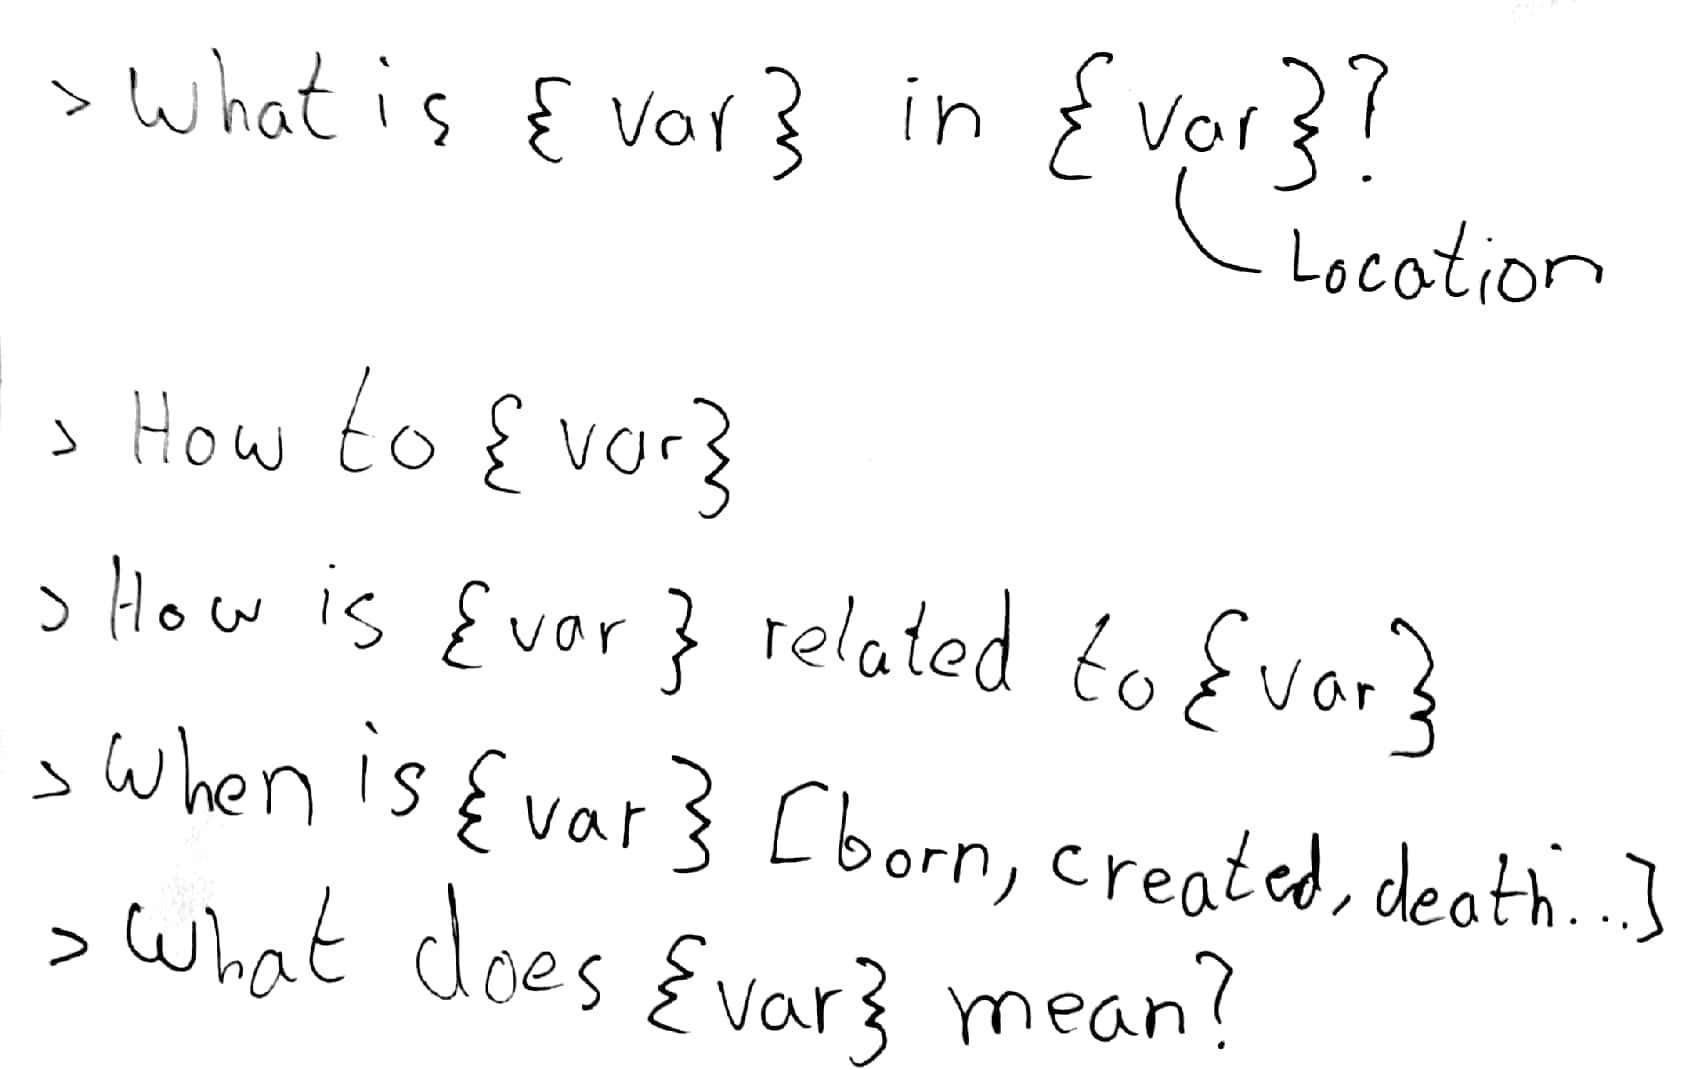 > What is {var} in {var}?
Location
> How to {var}
> How is {var} related to {var}
> When is {var} [born, created, death...]
> What does {var} mean?